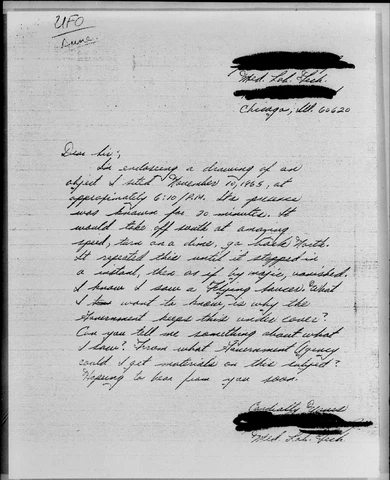 UFO
Med. Lab. Tech.
Chicago, Ill. 60620
Dear Sir;
Im enclosing a drawing of an
object I sited November 10, 1965, at
approximately 6:10 P.M. Its presence
was known for 20 minutes. It
would take off south at amazing
speed, turn on a dime, go back North.
It repeated this until it stopped in
a instant, then as if by magic, vanished.
I know I saw a Flying Saucer. What
I want to know, is why the
Government keeps this under cover?
Can you tell me something about what
I saw? From what Government Agency
could I get materials on this subject?
Hoping to hear from you soon.
Cordially Yours
Med. Lab. Tech.